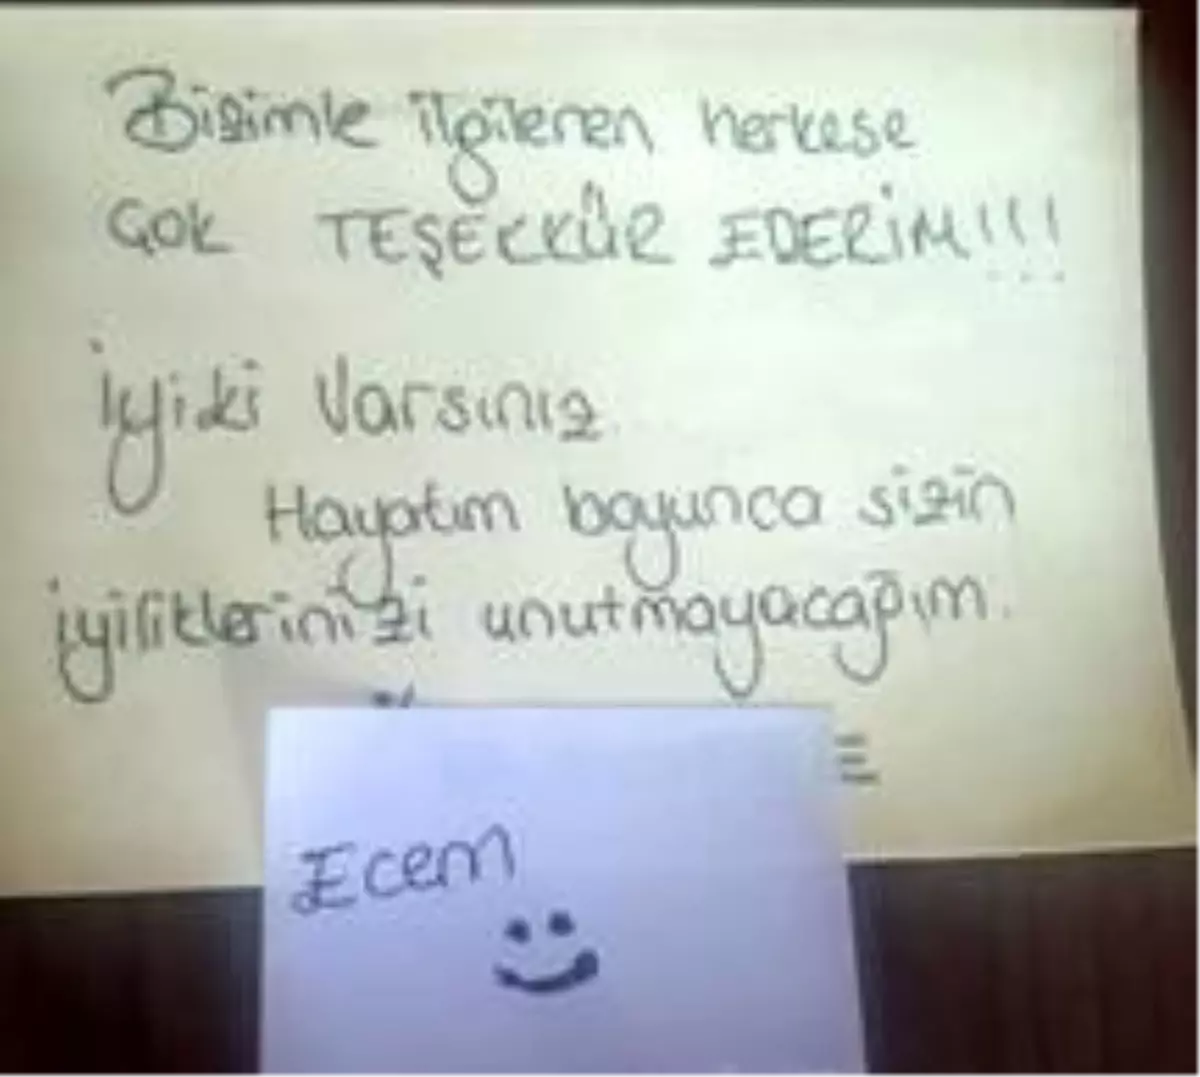 Bizimle ilgilenen herkese
Çok TEŞEKKÜR EDERİM!!!
İyiki Varsınız.
Hayatım boyunca sizin
iyiliklerinizi unutmayacağım.
Ecem